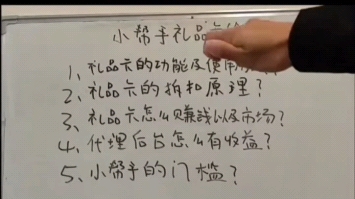 小帮手礼品卡
1、礼品卡的功能及使用
2、礼品卡的折扣原理？
3、礼品卡怎么赚钱以及市场？
4、代理后台怎么有收益？
5、小帮手的门槛？